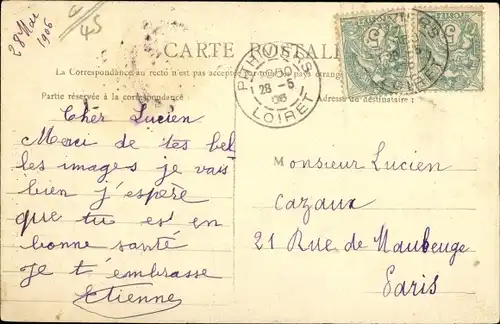 28 Mai
1906
45
CARTE POSTALE
La Correspondance au recto n'est pas acceptée par tous les pays étrangers
Partie réservée à la correspondance
Adresse du destinataire :
PITHIVIERS
28 -5
06
LOIRET
LOIRET
POSTES
5
5
Cher Lucien
Merci de tes bel
les images je vais
bien j'espère
que tu es en
bonne santé
je t'embrasse
Etienne
Monsieur Lucien
Cazaux
21 Rue de Maubeuge
Paris